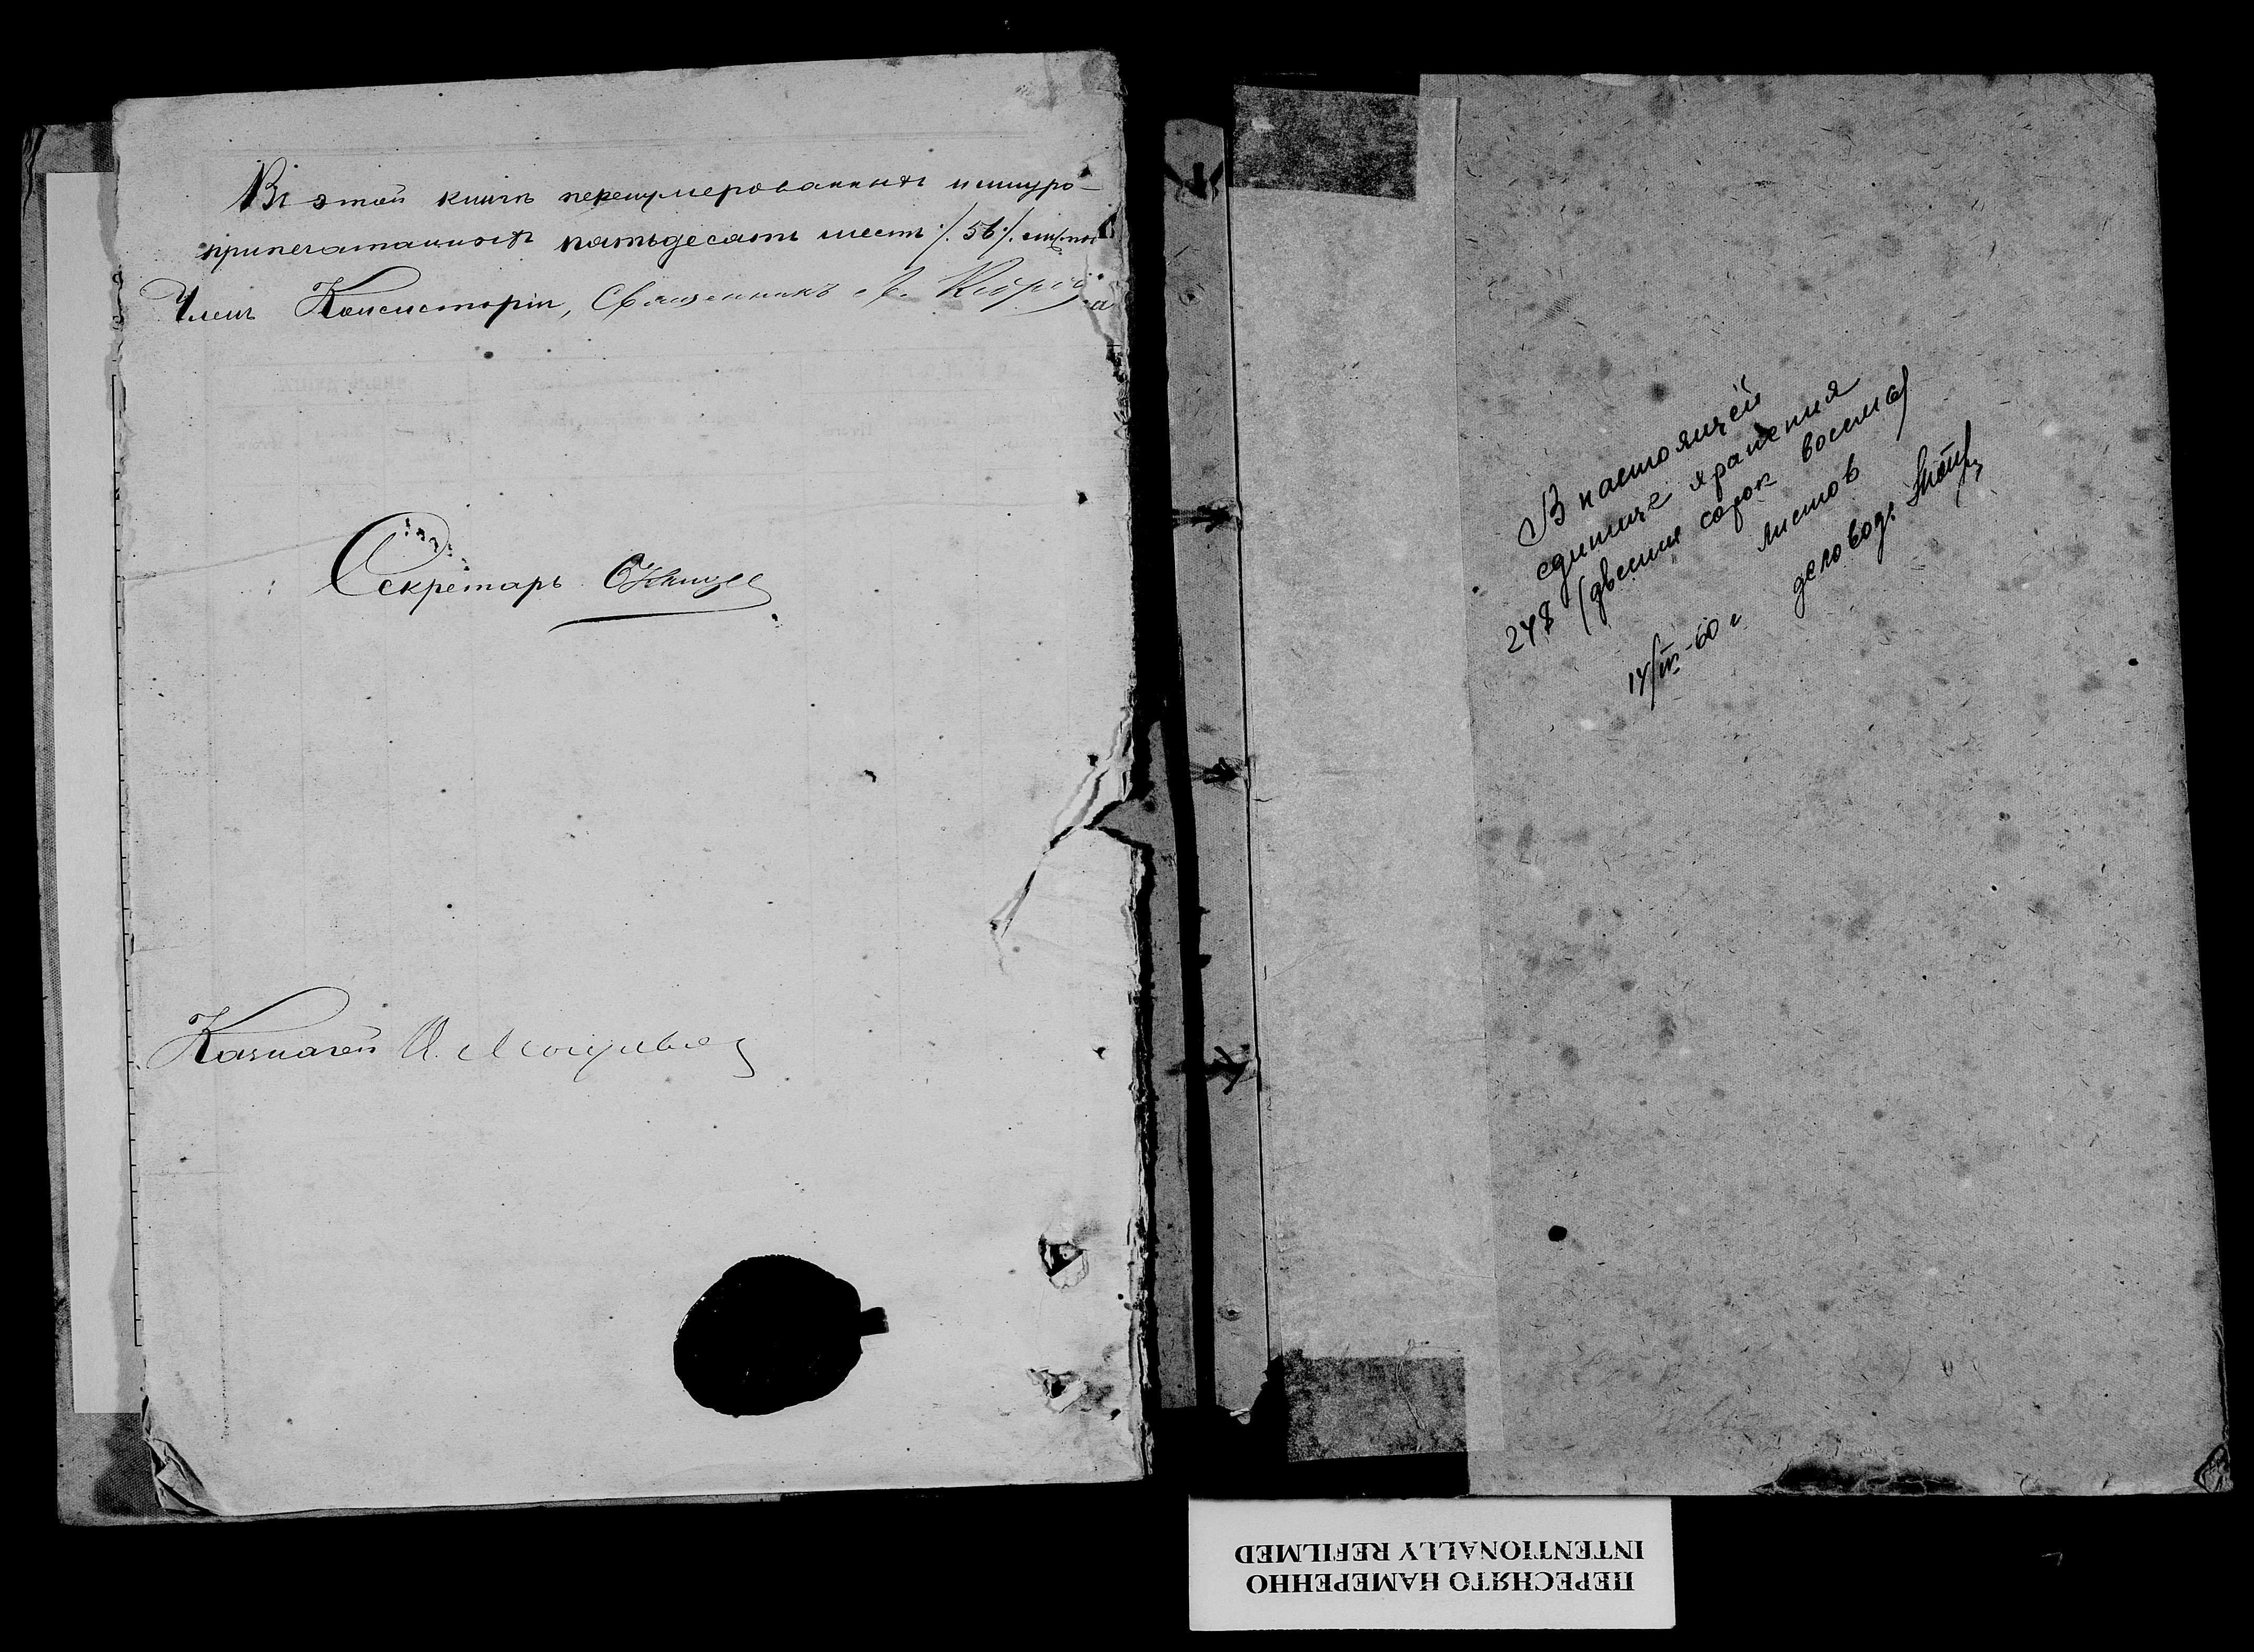 Въ этой книгѣ перенумерованныхъ и шнуро-
припечатанныхъ пятьдесятъ шесть /. 56 /. листовъ
Членъ Консисторіи, Священникъ А.
Секретарь
Казначей И.
В настоящей
единице хранения
248 (двести сорок восемь)
листов
14/IV-60 г деловод.
ПЕРЕСНЯТО НАМЕРЕННО
INTENTIONALLY REFILMED